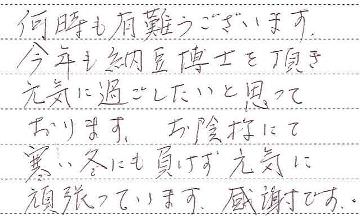 何時も有難うございます.
今年も納豆博士を頂き
元気に過ごしたいと思って
おります. お陰様にて
寒い冬にも負けず元気に
頑張っています. 感謝です.。